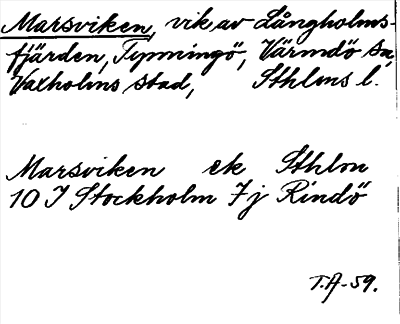 Marsviken, vik av Långholms-
fjärden, Tynningö, Värmdö sa,
Vaxholms stad, Sthlms l.
Marsviken ek Sthlm
10 I Stockholm 7j Rindö
T.A-59.